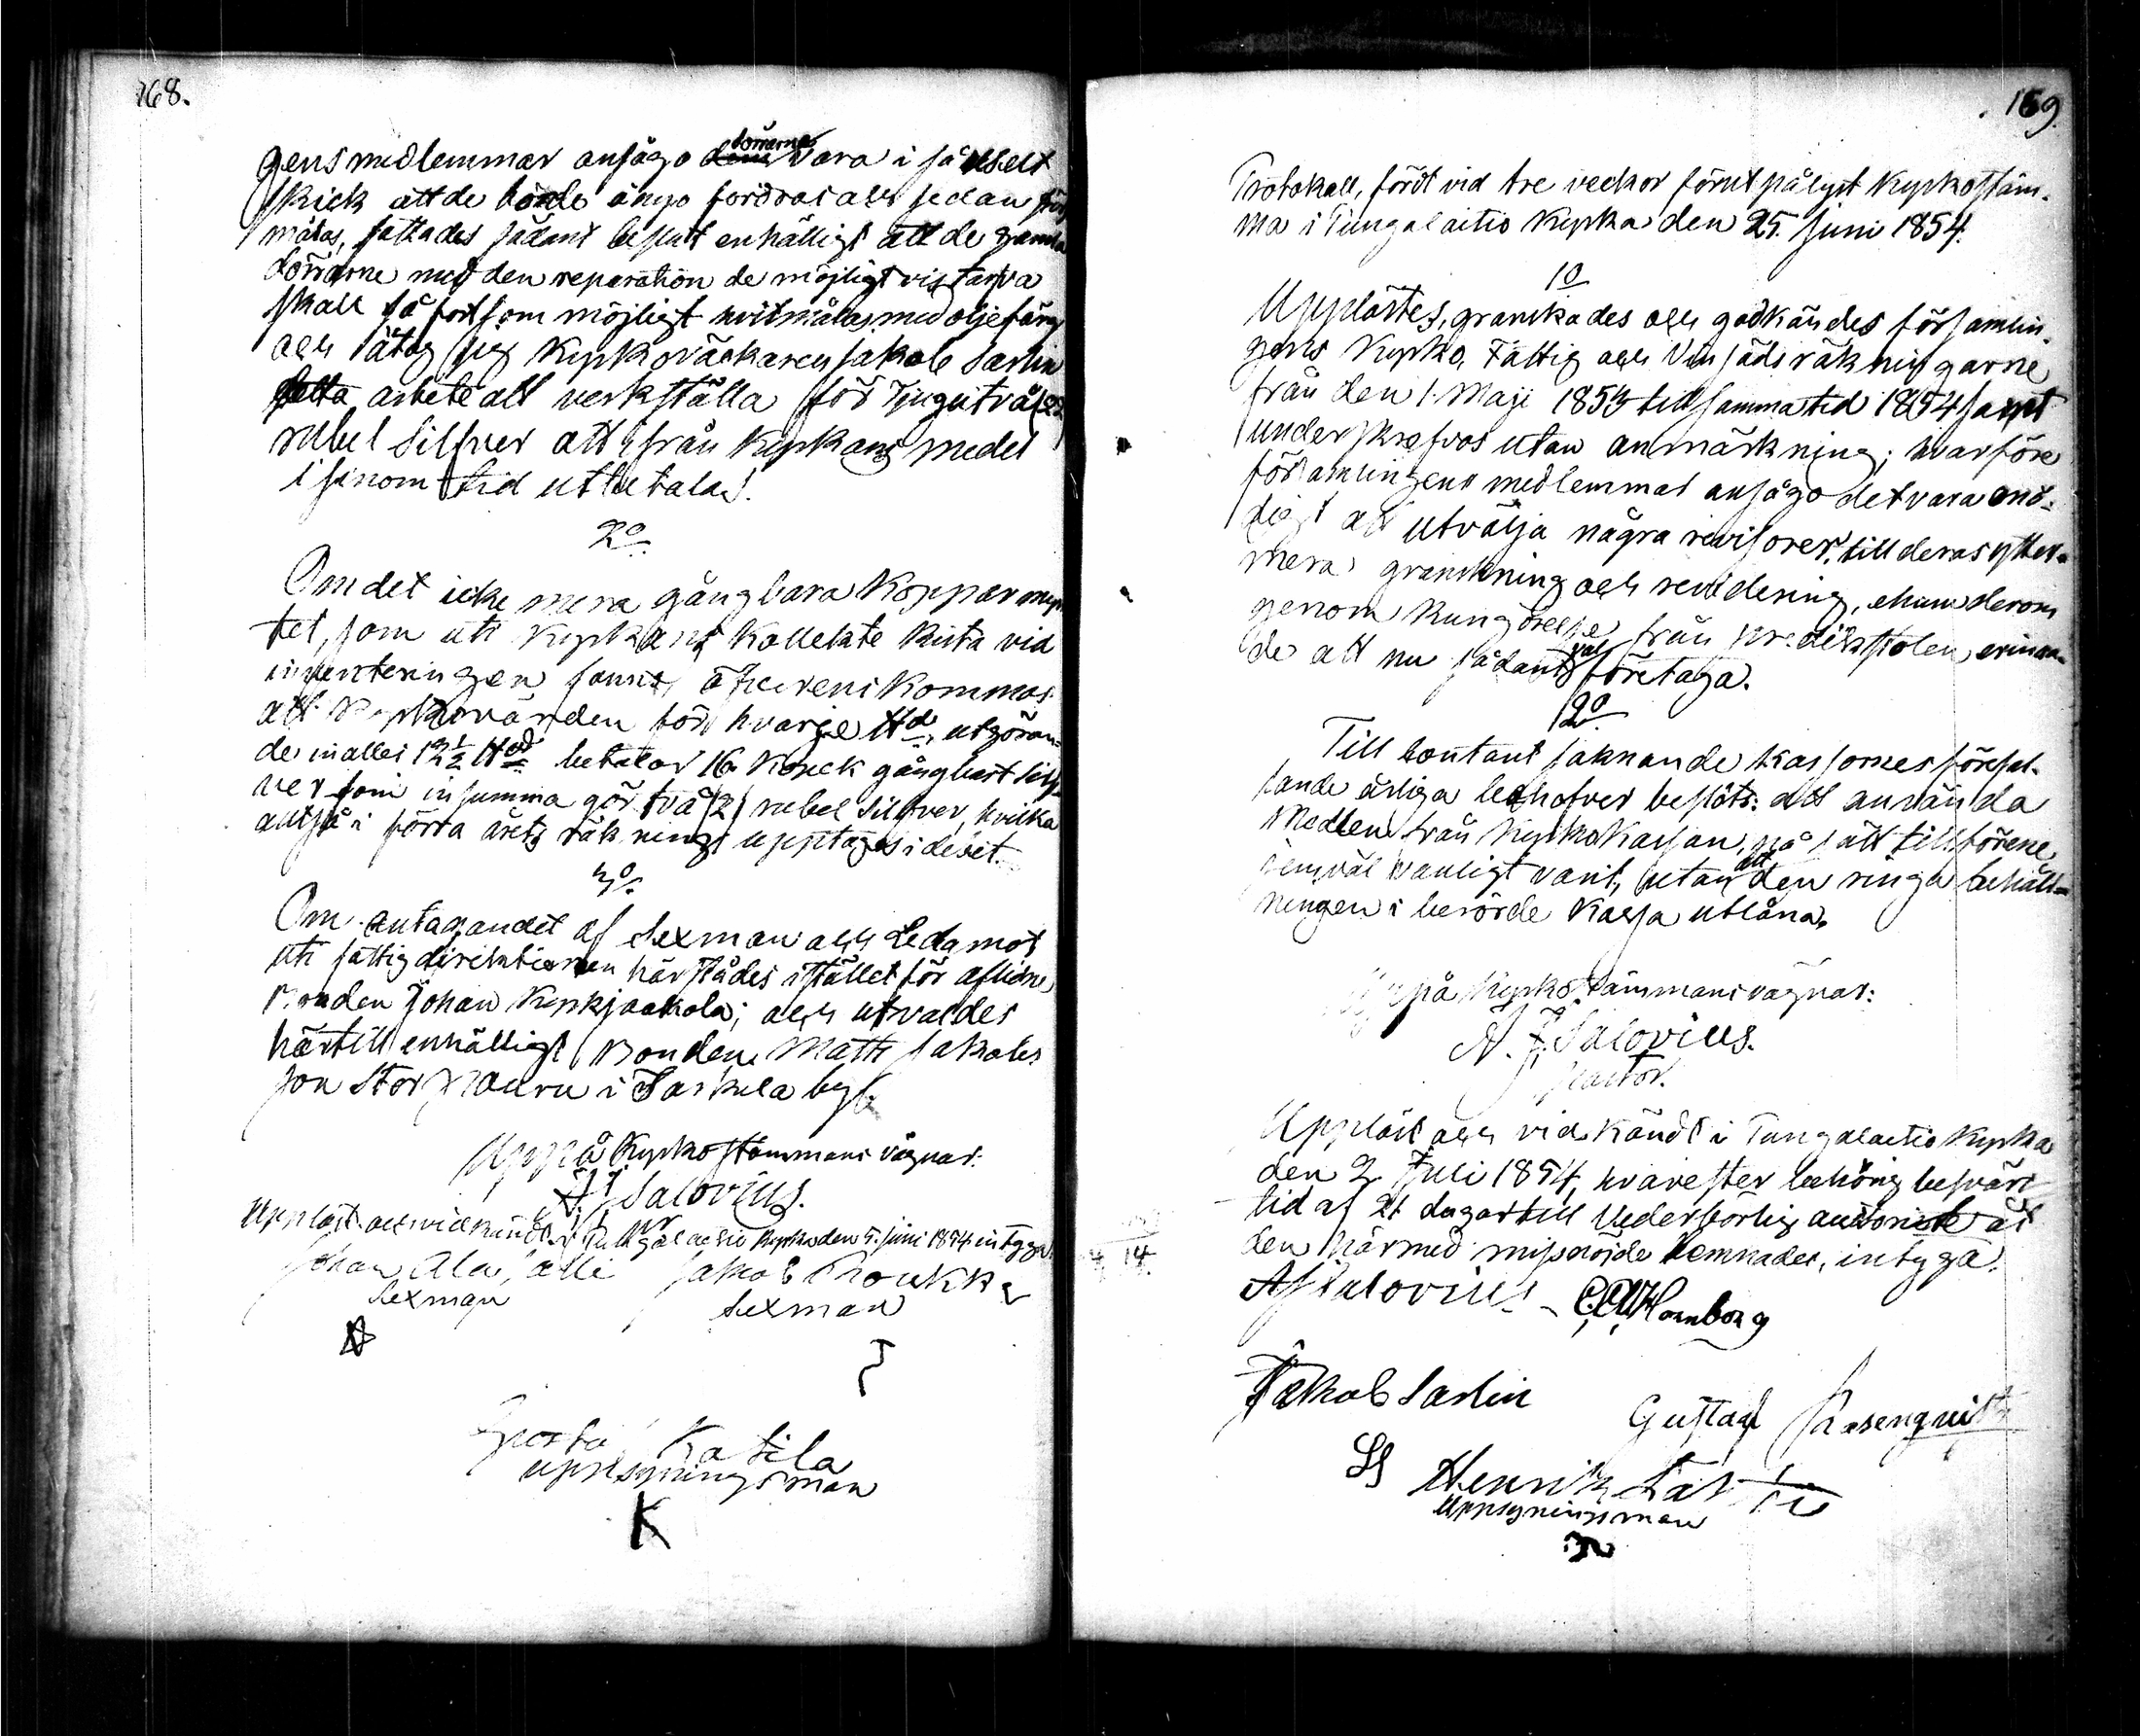 168.
gens medlemmar ansågo dörrarne vara i så uselt
skick att de borde ånyo fordras och sedan för
målas, fattades sådant beslut enhälligt att de gamla
dörrarne med den reparation de möjligtvis tarfva
skall så fort som möjligt hvitmålas med oljefärg
och åtog sig Kyrkoväktaren Jakob Sarlin
detta arbete att verkställa för Tjugutvå (22)
rubel Silfver att från Kyrkans medel
i sinom tid utbetalas.
2o
Om det icke mera gångbara Kopparmyn
tet, som uti Kyrkans Kollekte Kista vid
inventeringen fanns, öfverenskommos
att Kyrkovärden för hvarje ℔d, utgöran=
de inalles 12½ ℔d betalar 16 Kopek gångbart Silf
ver som in summa gör två (2) rubel Silfver, hvilka
altså i förra årets räkning upptages i debet.
3o
Om antagandet af Sexman och Ledamot
uti fattigdirektionen härstädes istället för aflidne
Bonden Johan Kyrkjaakola; och utvaldes
härtill enhälligt Bonden Matti Jakobs
son Storpouru i Jaskula by.
Uppå Kyrkostämmans vägnar:
A J Salovius.
Uppläst och vidkändt i Tungalaitio Kyrka den 5. juni 1854 intyga:
Johan Ala
Jakob Proukka
Sexman
Sexman
Gusta Katila
uppsyningsman
K
169.
Protokoll, fördt vid tre veckor förut pålyst Kyrkostäm-
ma i Tungalaitio Kyrka den 25. Juni 1854.
1o
Upplästes, granskades och godkändes församlin-
gens Kyrko, Fattig och Vinsädsräkningarne
från den 1. Maji 1853 till samma tid 1854 samt
underskrefvos utan anmärkning; hvarföre
församlingens medlemmar ansågo det vara onö-
digt att utvälja några revisorer till deras ytter-
mera granskning och revidering, ehuru derom
genom Kungörelse från predikstolen erinra-
de att nu sådant val företaga.
2o
Till contant saknande Kassornes förefal-
lande årliga behofver beslöts: att använda
Medlen från Kyrko Kassan, på sätt tillförene
jemväl vanligt varit, utan att den ringa behåll=
ningen i berörde Kassa utlåna.
Uppå Kyrkostämmans vägnar:
A. J. Salovius.
pastor.
Uppläst och vidkändt i Tungalaitio Kyrka
den 2 Juli 1854, hvarefter behörig besvärs
tid af 21 dagar till Vederbörlig auctoritet åt
den härmed missnöjde lemnades, intyga.
14.
A J Salovius
C. W. Homborg
Jakob Sarlin
Gustaf Rosenqvist
Henrik
Uppsyningsman